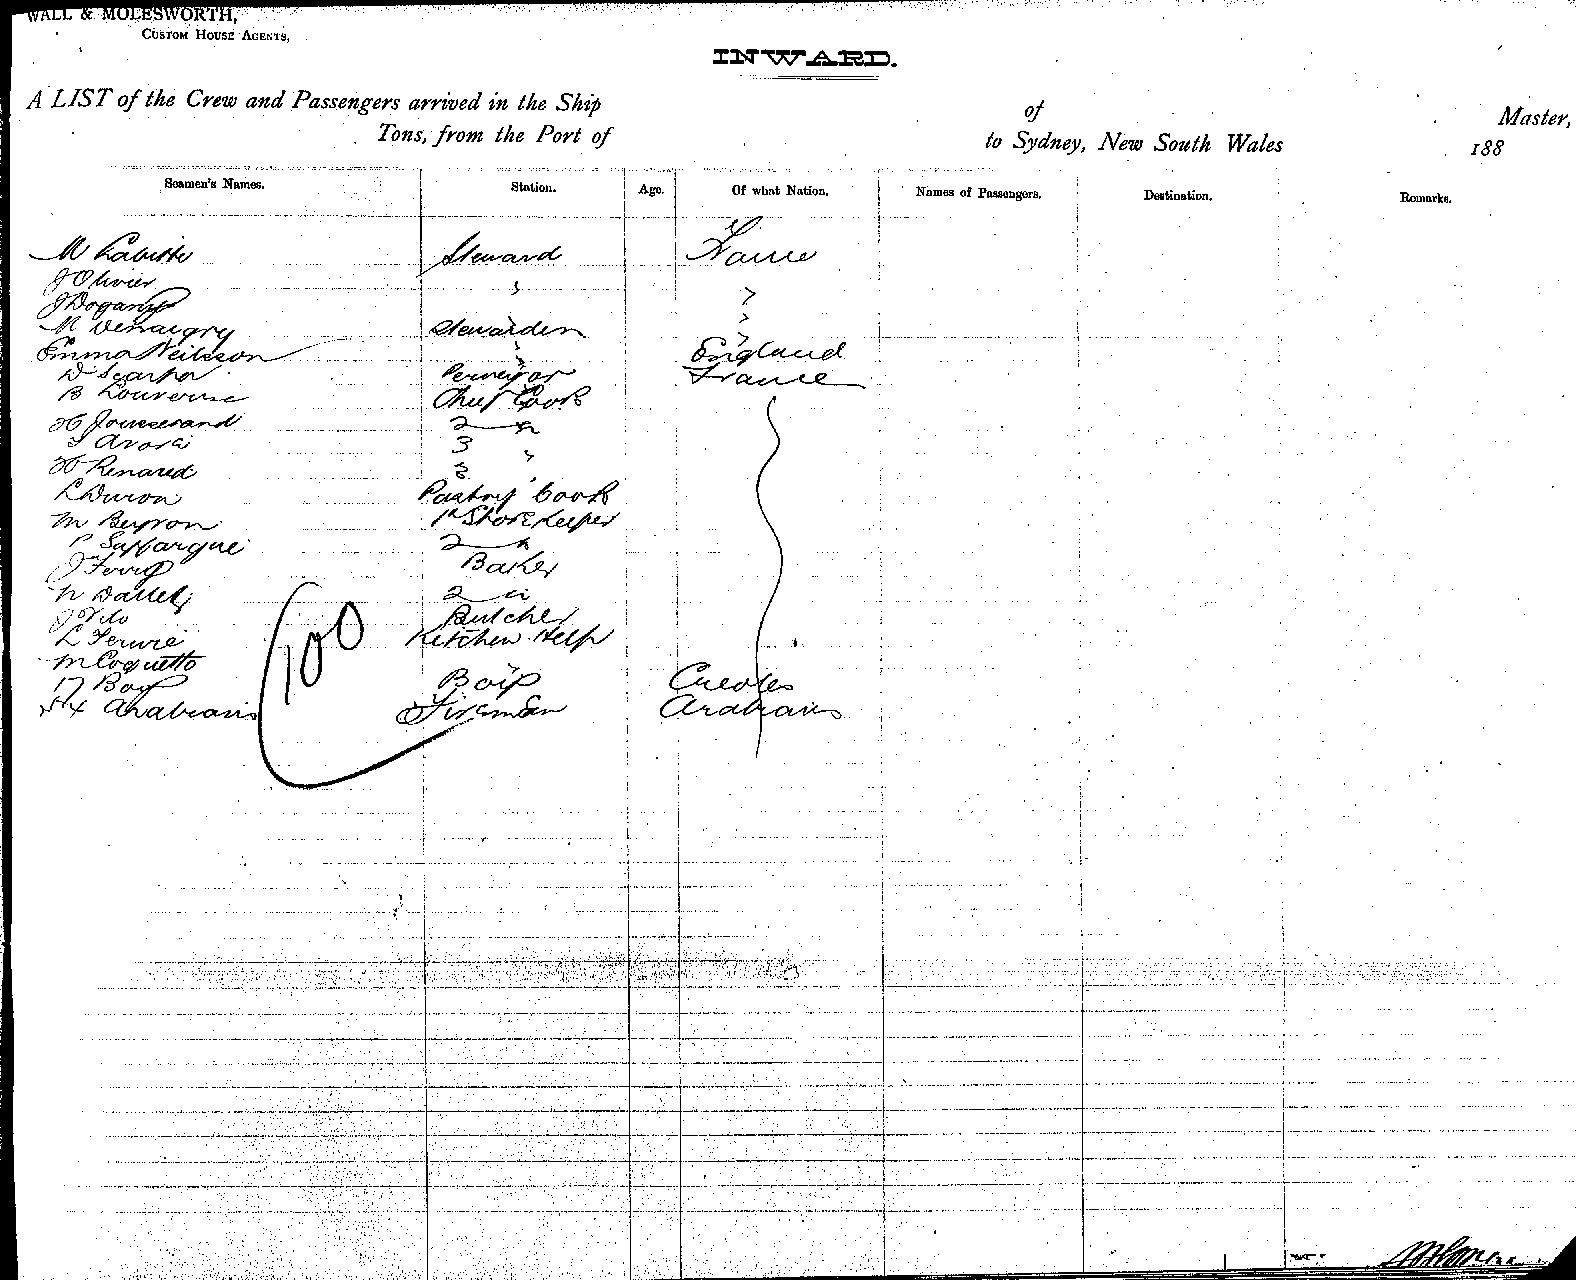 WALL & MOLESWORTH,
CUSTOM HOUSE AGENTS,
INWARD.
A LIST of the Crew and Passengers arrived in the Ship of Master,
Tons, from the Port of to Sydney, New South Wales 188
Seamen's Names. Station. Age. Of what Nation. Names of Passengers. Destination. Remarks.
M Labitte Steward France
J Olivier " "
J Dogany "
M Venaigry Stewarden "
Emma Neilsson " England
D Scarpa France
B Chief Cook
H Jousserand 2 "
3 "
H Renared 3 "
L Duron Pastry Cook
M Beyron 1st Storekeeper
P Saffargue 2 "
J Baker
2 "
Butcher
L Kitchen Help
M Coquetto
17 Boys Boys Creoles
Arabians Fireman Arabians
100